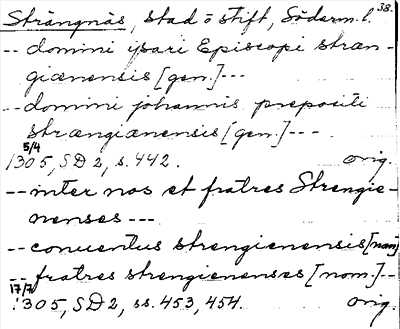 38.
Strängnäs, stad o stift, Söderm. l.
-- domini ysari Episcopi stran-
gianensis [gen.] ---
-- domini johannis prepositi
strængianensis [gen.] ---
5/4
1305, SD 2, s. 442. orig.
-- inter nos et fratres Strengie-
nenses ---
-- conuentus strengienensis [nom]
-- fratres strengienenses [nom.] --
17/7
1305, SD 2, ss. 453, 454. orig.